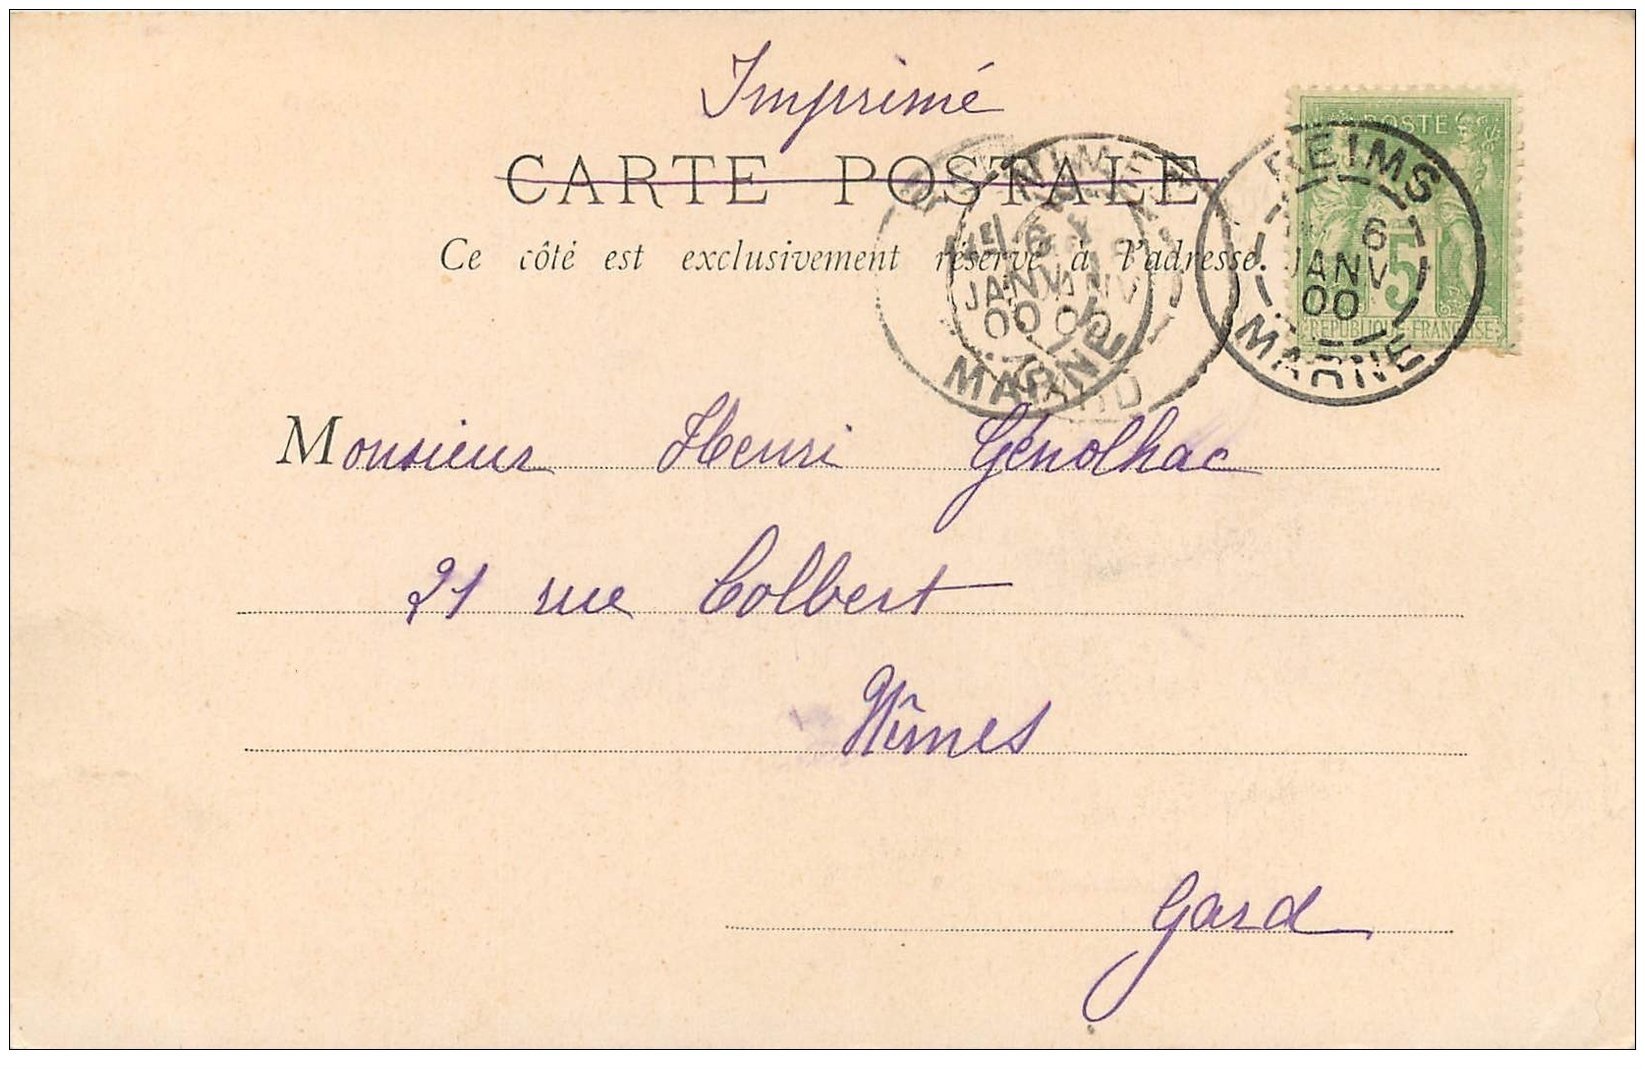 Imprimé
CARTE POSTALE
Ce côté est exclusivement réservé à l'adresse.
POSTE
5
REPUBLIQUE FRANÇAISE
REIMS
6
JANV
00
MARNE
NIMES
6
JANV
00
MARNE
GARD
Monsieur Henri Génolhac
21 rue Colbert
Nîmes
Gard